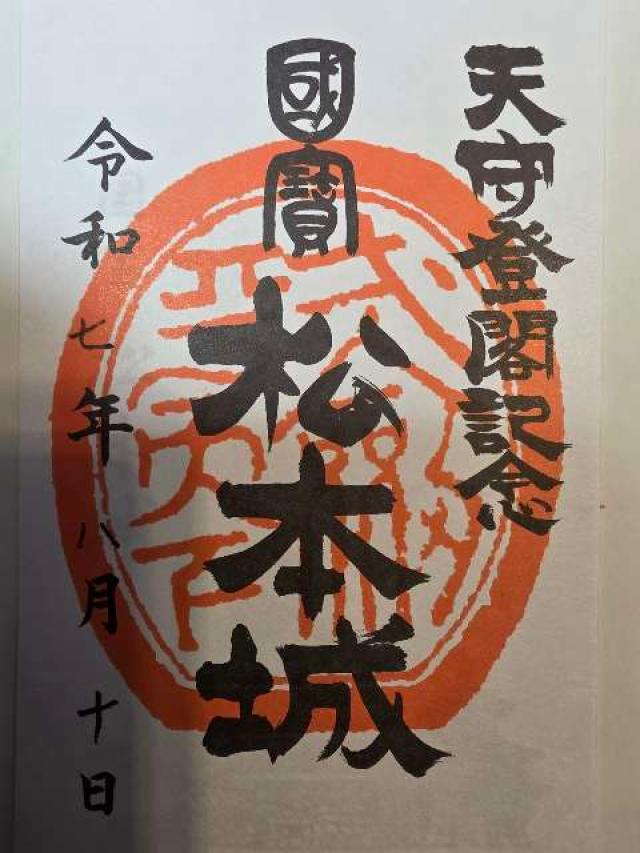 天守登閣記念
國寳
松本城
令和七年八月十日